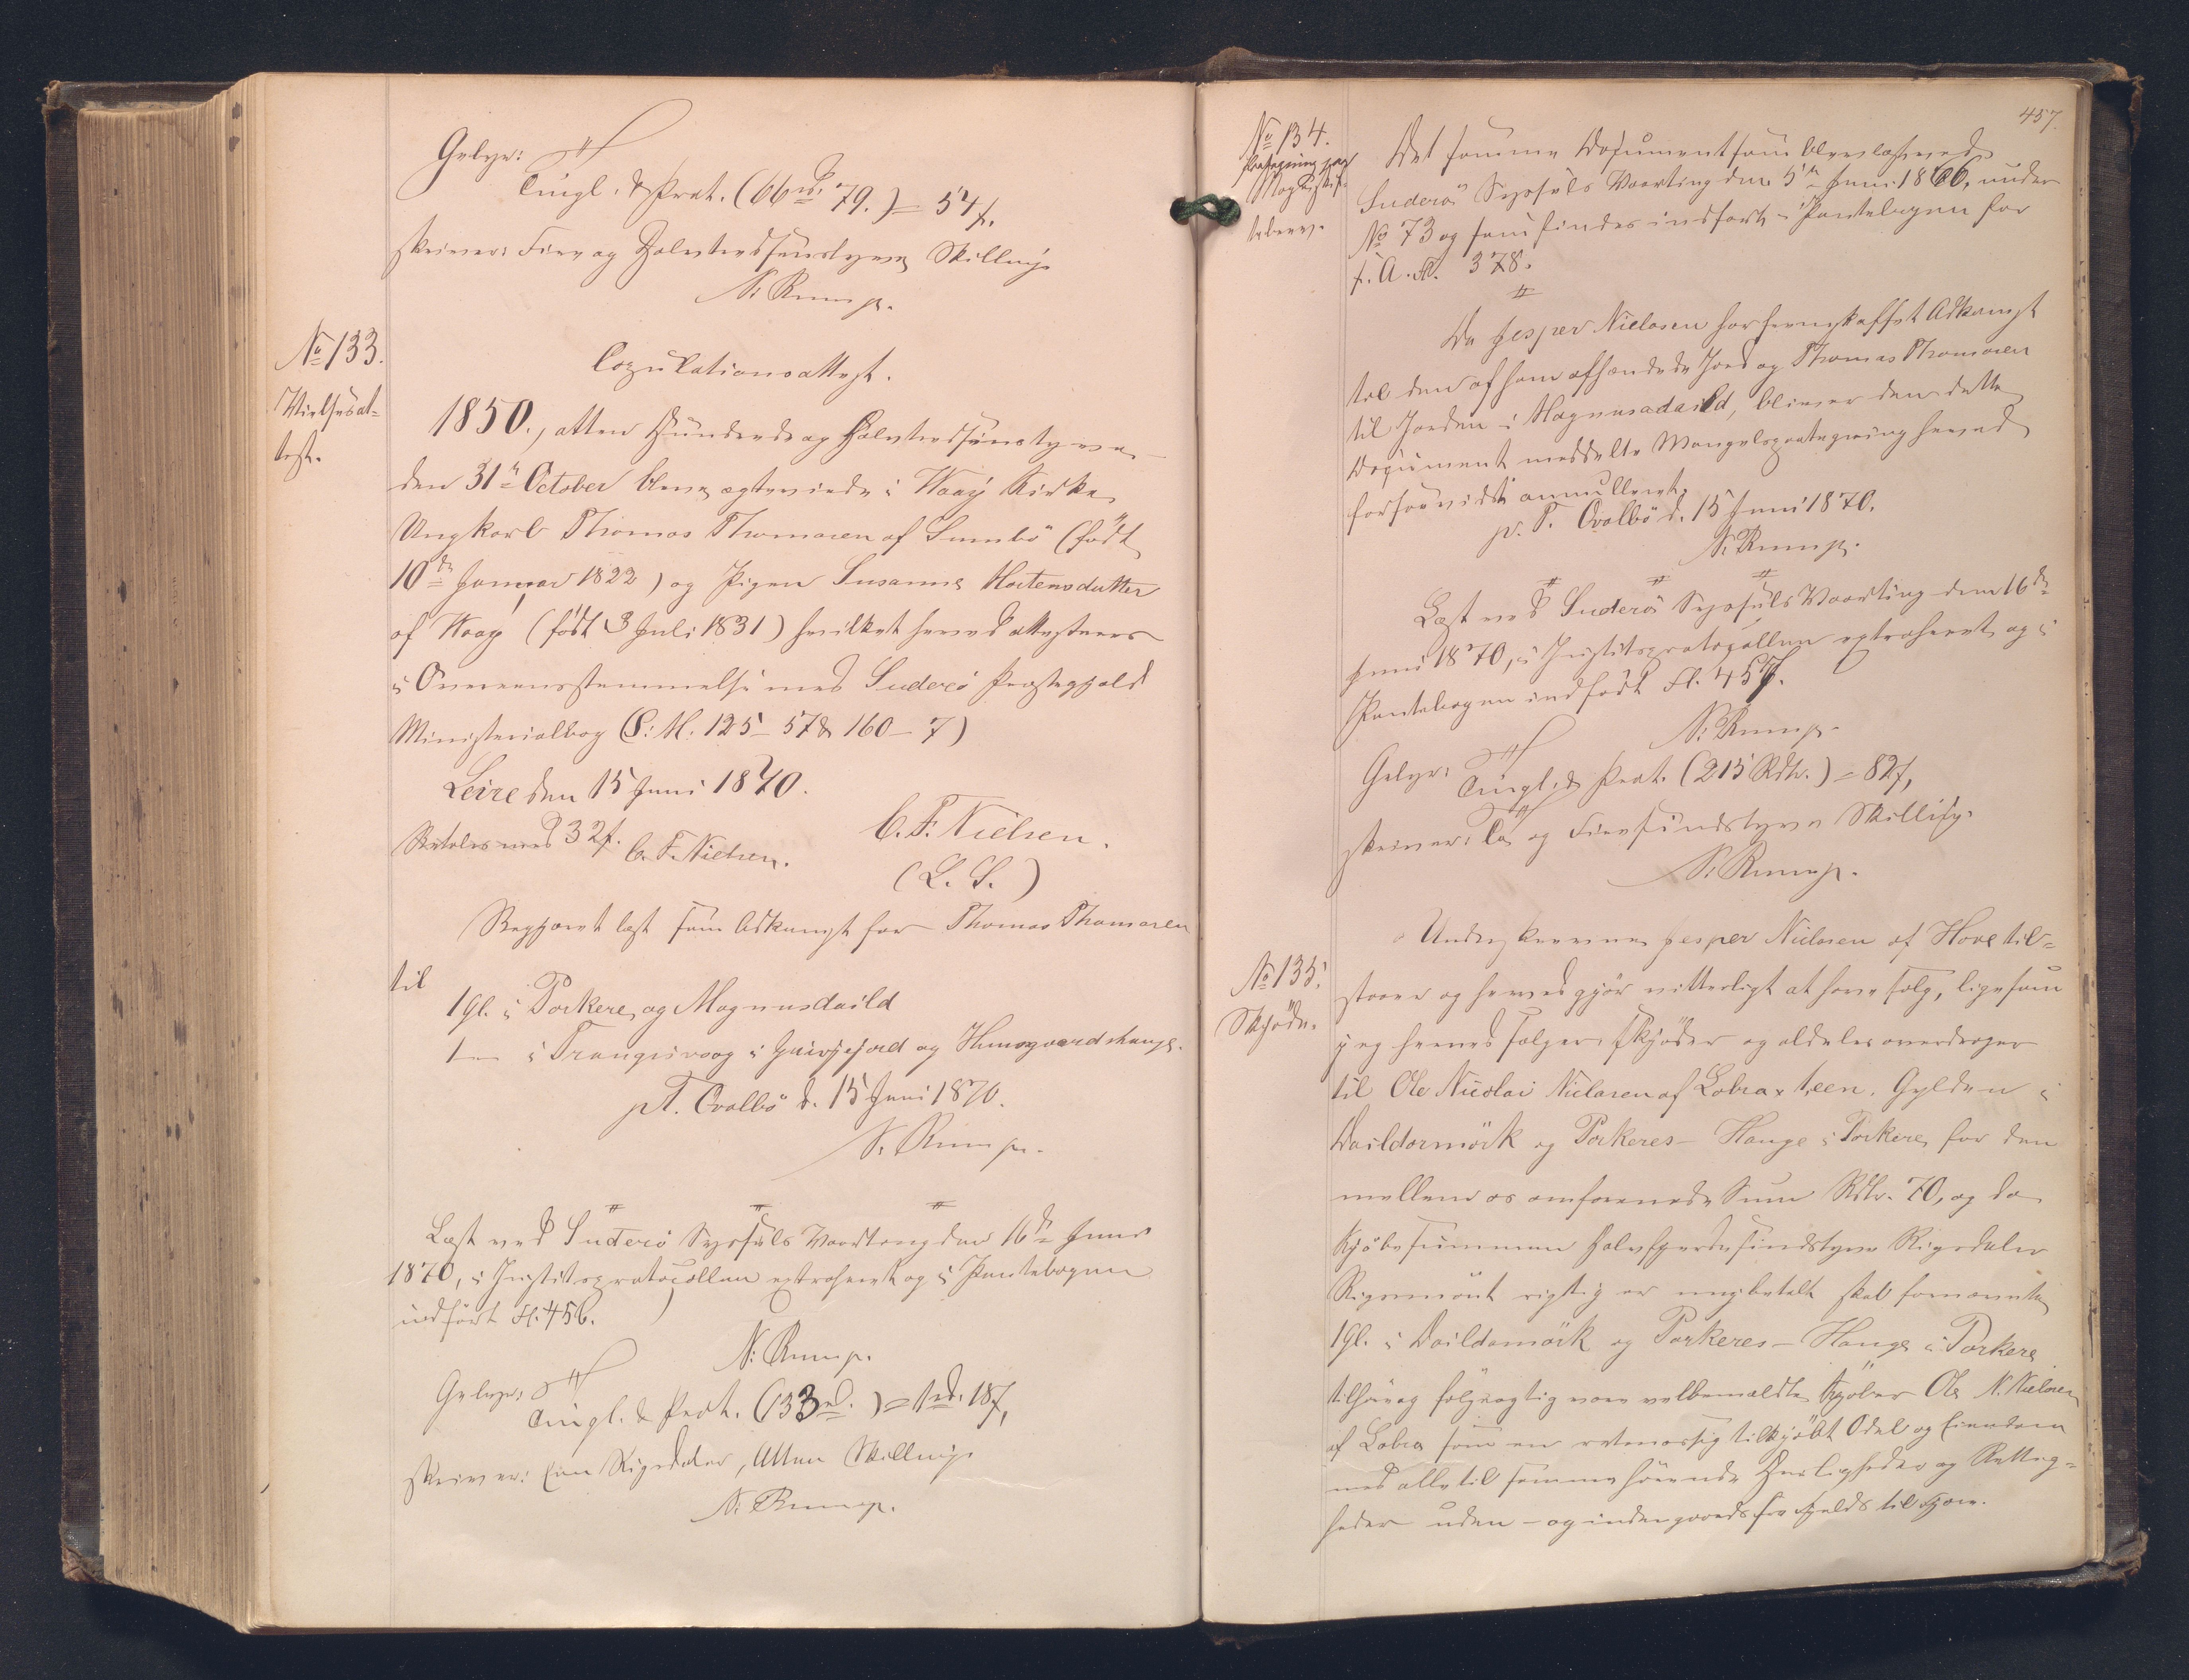 Gebyr:
Tingl. & Prot. (66 rd. 79.) = 54 f.
skriver: Fire og Halvtredsindstyve Skilling
N. Rump.
No 133.
Vielsesat=
test.
Copulationsattest.
1850., atten Hundrede og Halvtredsindstyve
den 31te October bleve ægteviede i Waag Kirke
Ungkarl Thomas Thomasen af Sumbö (födt
10de Januar 1822) og Pigen Susanne Mortensdatter
af Waag (födt 3 Juli 1831) hvilket herved attesteres
i Overeensstemmelse med Suderö Præstegjeld
Ministerialbog (S: M: 125 - 57 & 160 - 7)
Leire den 15 Juni 1870.
C. F. Nielsen.
(L. S.)
Betales med 32 f. C. F. Nielsen.
Begjæret læst som Adkomst for Thomas Thomasen
til
1 Gl. i Porkere og Magnusdaild
1 — i Trangisvaag i og
p. T. Qvalbö d. 15 Juni 1870.
N. Rump.
Læst ved Suderö Syssels Vaarting den 16de Juni
1870, i Justitsprotocollen extraheret og i Pantebogen
indfört Fl. 456.
N. Rump.
Gebyr:
Tingl. & Prot. (133 rd.) = 1 rd. 18 f,
skriver: Een Rigsdaler, Atten Skilling
N. Rump.
457.
No 134.
Paategning paa
Mageskif-
tebrev.
Det samme Document som blev læst ved
Suderö Syssels Vaarting den 5te Juni 1866, under
No 73 og som findes indfört i Pantebogen for
s. A. Fl. 378.
Da Jesper Nielsen har fremskaffet Adkomst
til den af ham afhændede Jord og Thomas Thomasen
til Jorden i Magnusadaild, bliver den dette
Document meddelte Mangelspaategning herved
forsaavidt annulleret.
p. T. Qvalbö d. 15 Juni 1870.
N. Rump.
Læst ved Suderö Syssels Vaarting den 16de
Juni 1870, i Justitsprotocollen extraheret og i
Pantebogen indfört Fl. 457.
N. Rump.
Gebyr:
Tingl. & Prot. (215 Rdlr.) = 82 f,
skriver: To og Fiirsindstyve Skilling.
N. Rump.
No 135.
Skjöde.
Undertegnede Jesper Nielsen af Hove til=
staaer og herved gjör vitterligt at have solgt, ligesom
jeg herved sælger, skjöder og aldeles overdrager
til Ole Nicolai Nielsen af Lobra 1, een, Gylden i
Daildarmörk og Porkeres - Hauge i Porkere for den
mellem os omforenede Sum Rdlr. 70, og da
Kjöbesummen Halvfjerdesindstyve Rigsdaler
Rigsmönt rigtig er mig betalt skal fornævnte
1 Gl. i Daildamörk og Porkeres - Hauge i Porkere
tilhöre og fölgagtig være velbemeldte Kjöber Ole N. Nielsen
af Lobra som en retmæssig tilkjöbt Odel og Eiendom
med alle til samme hörende Herligheder og Rettig=
heder uden - og indengjærds fra Fjelds til Fjære.